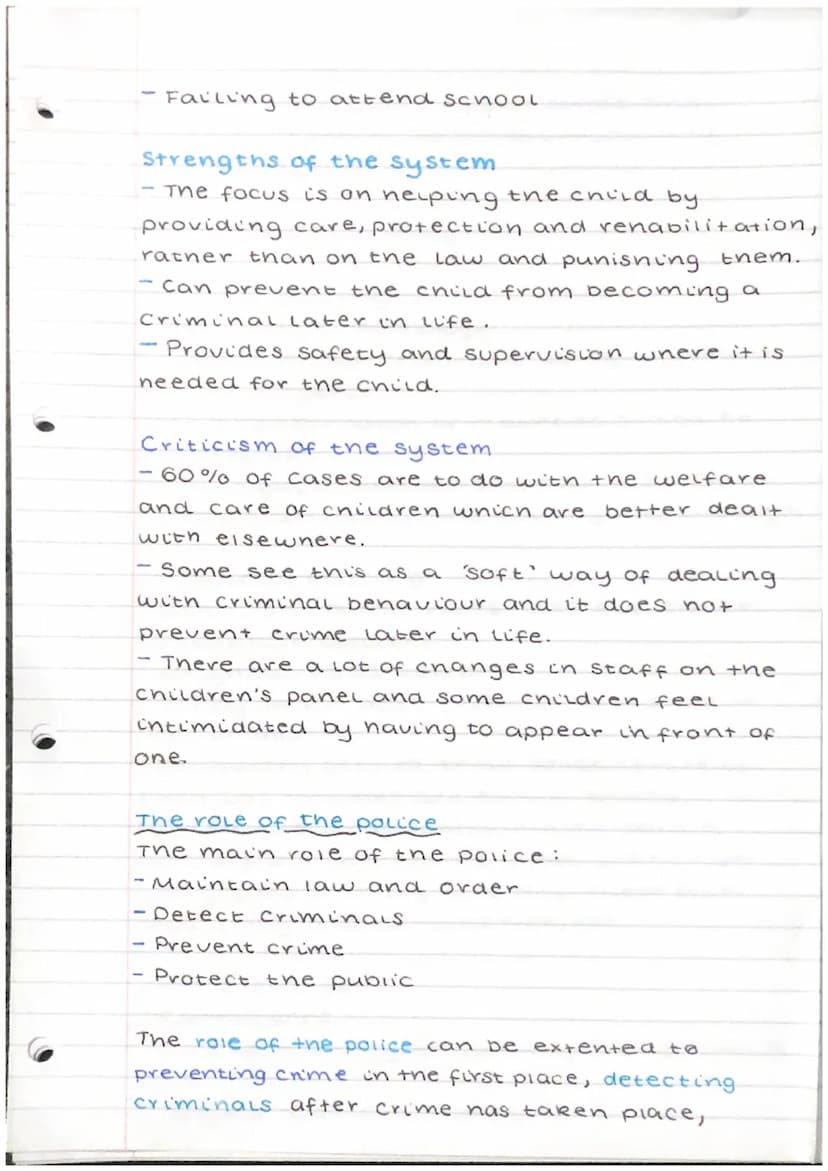 - Failing to attend school
Strengths of the system
- The focus is on helping the child by
providing care, protection and rehabilitation,
rather than on the law and punishing them.
- Can prevent the child from becoming a
criminal later in life.
- Provides safety and supervision where it is
needed for the child.
Criticism of the system
- 60% of cases are to do with the welfare
and care of children which are better dealt
with elsewhere.
- Some see this as a 'soft' way of dealing
with criminal behaviour and it does not
prevent crime later in life.
- There are a lot of changes in staff on the
children's panel and some children feel
intimidated by having to appear in front of
one.
The role of the police
The main role of the police:
- Maintain law and order
- Detect criminals
- Prevent crime
- Protect the public
The role of the police can be extented to
preventing crime in the first place, detecting
criminals after crime has taken place,